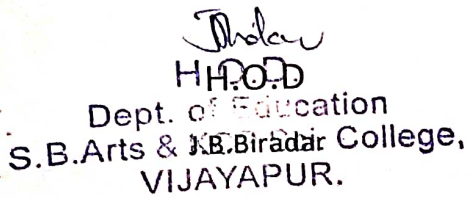 H.O.D
Dept. of Education
S.B.Arts & College,
VIJAYAPUR.